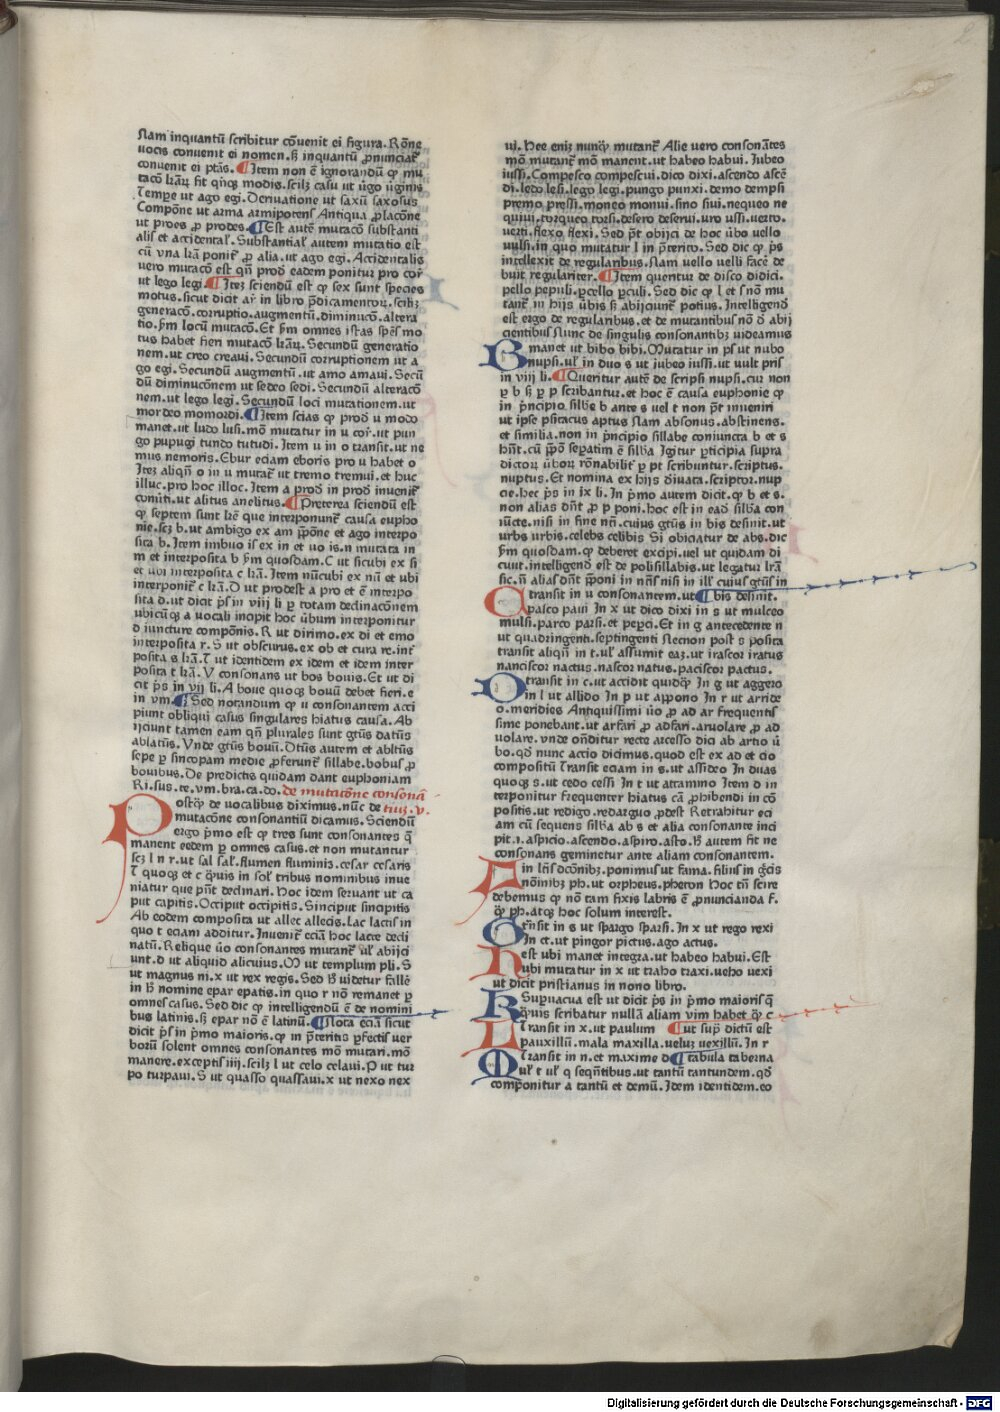 Nam inquantū scribitur cōuenit ei figura. Rōne
uocis conuenit ei nomen. s̄ inquantū ꝓnunciat᷑
conuenit ei ptās. ¶ Item non ē ignorandū ꝙ mu
tacō lr̄aꝝ fit qnqꝫ modis. scilꝫ casu ut ūgo ūginis
Tempe ut ago egi. Deriuatione ut saxū saxosus
Compōne ut arma armipotens Antiqua ꝓlacōne
ut proes ꝓ prodes. ¶ Est autē mutacō substanti
alis et accidental᷑. Substantial᷑ autem mutatio est
cū vna lr̄a ponit᷑ ꝓ alia. ut ago egi. Accidentalis
uero mutacō est qn̄ prod̄ eadem ponitur pro cor᷑
ut lego legi. ¶ Iteꝫ sciendū est ꝙ sex sunt species
motus. sicut dicit ar᷑ in libro p̄dicamentoꝝ. scilꝫ
generacō. corruptio. augmentū. diminucō. altera
tio. ẜm locū mutacō. Et ẜm omnes istas sp̄es mo
tus habet fieri mutacō lr̄aꝝ. Secundū generatio
nem. ut creo creaui. Secundū corruptionem ut a
go egi. Secundū augmentū. ut amo amaui. Secū
dū diminucōnem ut sedeo sedi. Secundū alteracō
nem. ut lego legi. Secundū loci mutationem. ut
mordeo momordi. ¶ Item scias ꝙ prod̄ u modo
manet. ut ludo lusi. mō mutatur in u cor᷑. ut pun
go pupugi tundo tutudi. Item u in o transit. ut ne
mus nemoris. Ebur eciam eboris pro u habet o
Iteꝫ aliqn̄ o in u mutat᷑ ut tremo tremui. et huc
illuc. pro hoc illoc. Item a prod̄ in prod̄ inuenit᷑
conūti. ut alitus anelitus. ¶ Preterea sciendū est
ꝙ septem sunt lr̄e que interponunt᷑ causa eupho
nie. scꝫ b. ut ambigo ex am p̄pōne et ago interpo
sita b. Item imbuo is ex in et uo is. n mutata in
m et interposita b ẜm quosdam. C ut sicubi ex si
et ubi interposita c lr̄a. Item nūcubi ex nū et ubi
interponit᷑ c lr̄a. D ut prodest a pro et ē interpo
sita d. ut dicit p̄s in viij li ꝑ totam declinacōnem
ubicūqꝫ a uocali incipit hoc ūbum interponitur
d iuncture compōnis. R ut dirimo. ex di et emo
interposita r. S ut obscurus. ex ob et cura re. int᷑
posita s lr̄a. T ut identidem ex idem et idem inter
posita t lr̄a. V consonans ut bos bouis. Et ut di
cit p̄s in vij li. A boue quoqꝫ bouū debet fieri. e
in vm. ¶ Sed notandum ꝙ u consonantem acci
piunt obliqui casus singulares hiatus causa. Ab
ijciunt tamen eam qn̄ plurales sunt gt̄us datūs
ablatūs. Vnde gt̄us bouū. Dt̄us autem et ablt̄us
sepe ꝑ sincopam medie ꝓferunt᷑ sillabe. bobus ꝓ
bouibus. De predictis quidam dant euphoniam
Ri. sus. te. vm. bra. ca. do. de mutacōne consonā
Postꝙ̄ de uocalibus diximus. nūc de tiuꝫ. v.
mutacōne consonantiū dicamus. Sciendū
ergo p̄mo est ꝙ tres sunt consonantes q̄
manent eedem ꝑ omnes casus. et non mutantur
scꝫ l n r. ut sal sal᷑. flumen fluminis. cesar cesaris
T quoqꝫ et c q̄uis in sol᷑ tribus nominibus inue
niatur que pn̄t declinari. Hoc idem seruant ut ca
put capitis. Occiput occipitis. Sinciput sincipitis
Ab eodem composita ut allec allecis. Lac lactis in
quo t eciam additur. Inuenit᷑ eciā hoc lacte decli
natū. Relique ūo consonantes mutant᷑ ul᷑ abijci
unt. d ut aliquid alicuius. M ut templum pli. S
ut magnus ni. x ut rex regis. Sed h̄ uidetur fallē
in h̄ nomine epar epatis. in quo r nō remanet ꝑ
omnes casus. Sed dic ꝙ intelligendū ē de nomini
bus latinis. s̄ epar nō ē latinū. ¶ Nota eciā sicut
dicit p̄s in p̄mo maiori. ꝙ in p̄teritis ꝑfectis uer
borū solent omnes consonantes mō mutari. mō
manere. exceptis iiij. scilꝫ l ut celo celaui. P ut tur
po turpaui. S ut quasso quassaui. x ut nexo nex
ui. Hee eniꝫ nunꝙ̄ mutant᷑ Alie uero consonātes
mō mutant᷑ mō manent. ut habeo habui. Iubeo
iussi. Compesco compescui. dico dixi. ascendo ascē
di. ledo lesi. lego legi. pungo punxi. demo dempsi
premo pressi. moneo monui. sino siui. nequeo ne
quiui. torqueo torsi. desero deserui. uro ussi. uerto.
uerti. flexo flexi. Sed p̄t obijci de hoc ūbo uello
uulsi. in quo mutatur l in p̄terito. Sed dic ꝙ p̄s
intellexit de regularibus. Nam uello uelli facē de
buit regulariter. ¶ Item queritur de disco didici.
pello pepuli. ꝑcello ꝑculi. Sed dic ꝙ l et s nō mu
tant᷑ in hijs ūbis s̄ abijciunt᷑ potius. Intelligend̄
est ergo de regularibus. et de mutantibus nō d̄ abij
cientibus Nunc de singulis consonantibꝫ uideamus
Bmanet ut bibo bibi. Mutatur in ps ut nubo
nupsi. ul᷑ in duo s ut iubeo iussi. ut uult pris
in viij li. ¶ Queritur autē de scripsi nupsi. cur non
ꝑ b s̄ ꝑ p scribantur. et hoc ē causa euphonie ꝙ
in p̄ncipio sillbe b ante s uel t non p̄t inueniri
ut ipse psitacus aptus Nam absonus. abstinens.
et similia. non in p̄ncipio sillabe coniuncta b et s
hn̄t. cū p̄pō seꝑatim ē sillba Igitur ꝑticipia supra
dictoꝝ ūboꝝ rōnabilit᷑ ꝑ pt scribuntur. scriptus.
nuptus. Et nomina ex hijs d̄iuata. scriptor. nup
cie. hec p̄s in ix li. In p̄mo autem dicit. ꝙ b et s.
non alias dn̄t ꝓ p poni. hoc est in ead̄ sillba con
iūcte. nisi in fine nn̄. cuius gt̄us in bis desinit. ut
urbs urbis. celebs celibis Si obiciatur de abs. dic
ẜm quosdam. ꝙ deberet excipi. uel ut quidam di
cunt. intelligend̄ est de polisillabis. ut legatur lr̄a
sic. n̄ alias dn̄t p̄poni in nn̄s nisi in ill᷑ cuius gt̄us in
Ctransit in u consonantem. ut ¶ bis desinit.
pasco paui In x ut dico dixi in s ut mulceo
mulsi. parco parsi. et peꝑci. Et in g antecedente n
ut quadringenti. septingenti Necnon post s p̄posita
transit aliqn̄ in t. ul᷑ assumit eaꝫ. ut irascor iratus
nanciscor nactus. nascor natus. paciscor pactus.
Dtransit in c. ut accidit quidꝙ̄ In g ut aggero
in l ut allido In p ut appono In r ut arride
o. meridies Antiquissimi ūo ꝓ ad ar frequentis
sime ponebant. ut arfari ꝓ adfari. aruolare ꝓ ad
uolare. vnde on̄ditur recte arcesso dici ab artio ū
bo. qd̄ nunc accio dicimus. quod est ex ad et cio
compositū Transit eciam in s. ut assideo In duas
quoqꝫ s. ut cedo cessi In t ut attamino Item d in
terponitur frequenter hiatus cā ꝓhibendi in cō
positis. ut redigo. redarguo ꝓdest Retrahitur eci
am cū sequens sillba ab s et alia consonante inci
pit. i. aspicio. ascendo. aspiro. asto. h̄ autem fit ne
consonans geminetur ante aliam consonantem.
Fin lr̄is dcōnibꝫ. ponimus ut fama. filius in gr̄cis
nōinibꝫ ph. ut orpheus. pheron Hoc tn̄ scire
debemus ꝙ nō tam fixis labris ē ꝓnuncianda f.
ꝙ̄ ph. atqꝫ hoc solum interest.
Gtr̄nsit in s ut spargo sparsi. In x ut rego rexi
In ct. ut pingor pictus. ago actus.
Hest ubi manet integra. ut habeo habui. Est
ubi mutatur in x ut traho traxi. ueho uexi
ut dicit pristianus in nono libro.
KSupuacua est ut dicit p̄s in p̄mo maioris q̄
q̄uis scribatur nullā aliam vim habet ꝙ̄ c
LTransit in x. ut paulum ¶ ut sup̄ dictū est
pauxillū. mala maxilla. ueluꝫ uexillū. In r
MTransit in n. et maxime d ¶ tabula taberna
ul᷑ t ul᷑ q seqn̄tibus. ut tantū tantundem. qd̄
componitur a tantū et demū. Idem identidem. eo
Digitalisierung gefördert durch die Deutsche Forschungsgemeinschaft - DFG